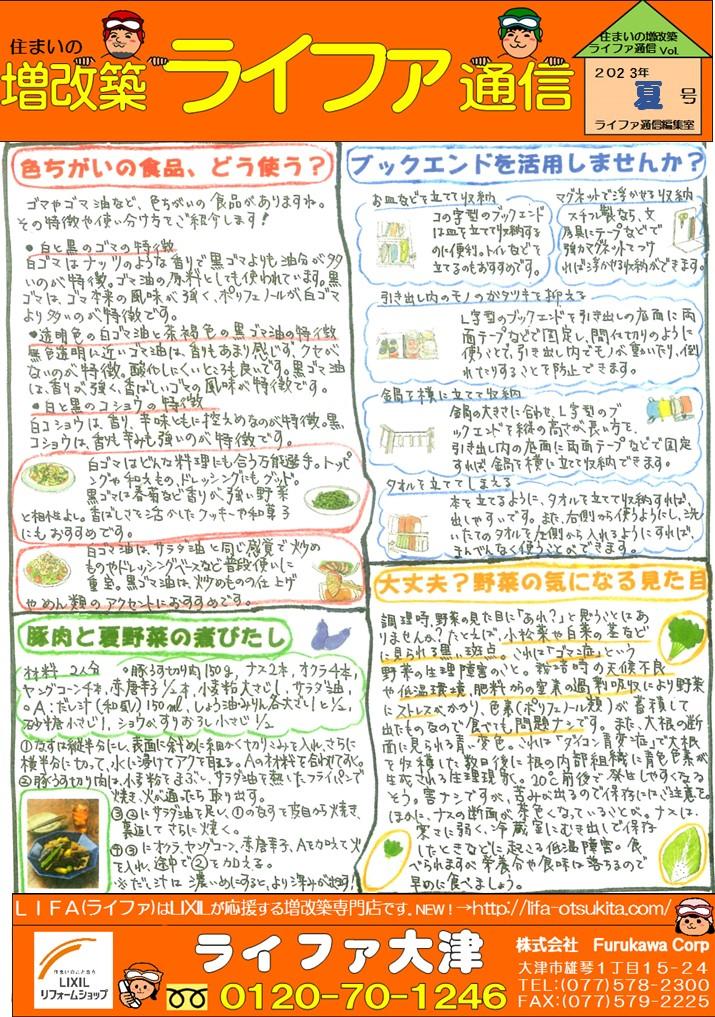 住まいの
増改築 ライファ 通信
住まいの増改築
ライファ通信 Vol.
2023年
夏 号
ライファ通信編集室
色ちがいの食品、どう使う?
ゴマやゴマ油など、色ちがいの食品がありますね。
その特徴や使い分け方をご紹介します!
●白と黒のゴマの特徴
白ゴマはナッツのような香りで黒ゴマよりも油分が多
いのが特徴。ゴマ油の原料としても使われています。黒
ゴマは、ゴマ本来の風味が強く、ポリフェノールが白ゴマ
より多いのが特徴です。
●透明色の白ゴマ油と茶褐色の黒ゴマ油の特徴
無色透明に近いゴマ油は、香りもあまり感じず、クセが
ないのが特徴。酸化しにくいところも良いです。黒ゴマ油
は、香りが強く、香ばしいゴマの風味が特徴です。
●白と黒のコショウの特徴
白コショウは、香り、辛味ともに控えめなのが特徴。黒
コショウは、香りも辛みも強いのが特徴です。
白ゴマはどんな料理にも合う万能選手。トッピ
ングや和えもの、ドレッシングにもグッド。
黒ゴマは春菊など香りが強い野菜
と相性よし。香ばしさを活かしたクッキーや和菓子
にもおすすめです。
白ゴマ油は、サラダ油と同じ感覚で炒め
ものやドレッシングベースなど普段使いに
重宝。黒ゴマ油は、炒めものの仕上げ
やめん類のアクセントにおすすめです。
豚肉と夏野菜の煮びたし
材料 2人分 ○豚ろす切り肉150g、ナス2本、オクラ4本、
ヤングコーン4本、赤唐辛子1/2本、小麦粉大さじ1、サラダ油、
○A:だし汁(和風)150ml、しょう油・みりん各大さじ1と1/2、
砂糖小さじ1、ショウガすりおろし小さじ1/2
①なすは縦半分にし、表面に斜めに細かく切りこみを入れ、さらに
横半分に切って、水に浸けてアクを取る。Aの材料を合わせておく。
②豚ろす切り肉は、小麦粉をまぶし、サラダ油を熱したフライパンで
焼き、火が通ったら取り出す。
③②にサラダ油を足し、①のなすを皮目から焼き、
裏返してさらに焼く。
④③にオクラ、ヤングコーン、赤唐辛子、Aを加えて火
を入れ、途中で②を加える。
※だし汁は濃いめにすると、より深みが出ます!
ブックエンドを活用しませんか?
お皿などを立てて収納
コの字型のブックエンド
は皿を立てて収納する
のに便利。トイレなどを
立てるのもおすすめです。
マグネットで浮かせる収納
スチール製なら、文
房具にテープなどで
強力マグネットをつけ
れば浮かせる収納ができます。
引き出し内のモノのガタツキを抑える
L字型のブックエンドを引き出しの底面に両
面テープなどで固定し、間仕切りのように
使うことで、引き出し内でモノが動いたり、倒
れたりすることを防止できます。
鍋を横に立てて収納
鍋の大きさに合わせ、L字型のブ
ックエンドを縦の高さが長い方を、
引き出し内の底面に両面テープなどで固定
すれば鍋を横に立てて収納できます。
タオルを立ててしまえる
本を立てるように、タオルを立てて収納すれば、
出しやすいです。また、右側から使うようにし、洗
いたてのタオルを左側から入れるようにすれば、
まんべんなく使うことができます。
大丈夫?野菜の気になる見た目
調理時、野菜の見た目に「あれ?」と思うことはあ
りませんか?たとえば、小松菜や白菜の茎などに
見られる黒い斑点。これは「ゴマ症」という
野菜の生理障害のこと。栽培時の天候不良
や低温環境、肥料からの窒素の過剰吸収により野菜
にストレスがかかり、色素(ポリフェノール類)が蓄積して
出たものなので食べても問題ナシです。また、大根の断
面に見られる青い変色。これは「ダイコン青変症」で大根
を収穫した数日後に根の内部組織に青色色素が
生成される生理現象。20℃前後で発生しやすくなる
そう。害ナシですが、苦みが出るので保存にはご注意を。
ほかに、ナスの断面が茶色くなっていることが。ナスは、
寒さに弱く、冷蔵室にむき出しで保存
したときなどに起こる低温障害。食
べられますが栄養分や食味は落ちるので
早めに食べましょう。
LIFA(ライファ)はLIXILが応援する増改築専門店です。NEW!→http://lifa-otsukita.com/
住まいのこと色々
LIXIL
リフォームショップ
ライファ大津
0120-70-1246
株式会社 Furukawa Corp
大津市雄琴1丁目15-24
TEL:(077)578-2300
FAX:(077)579-2225